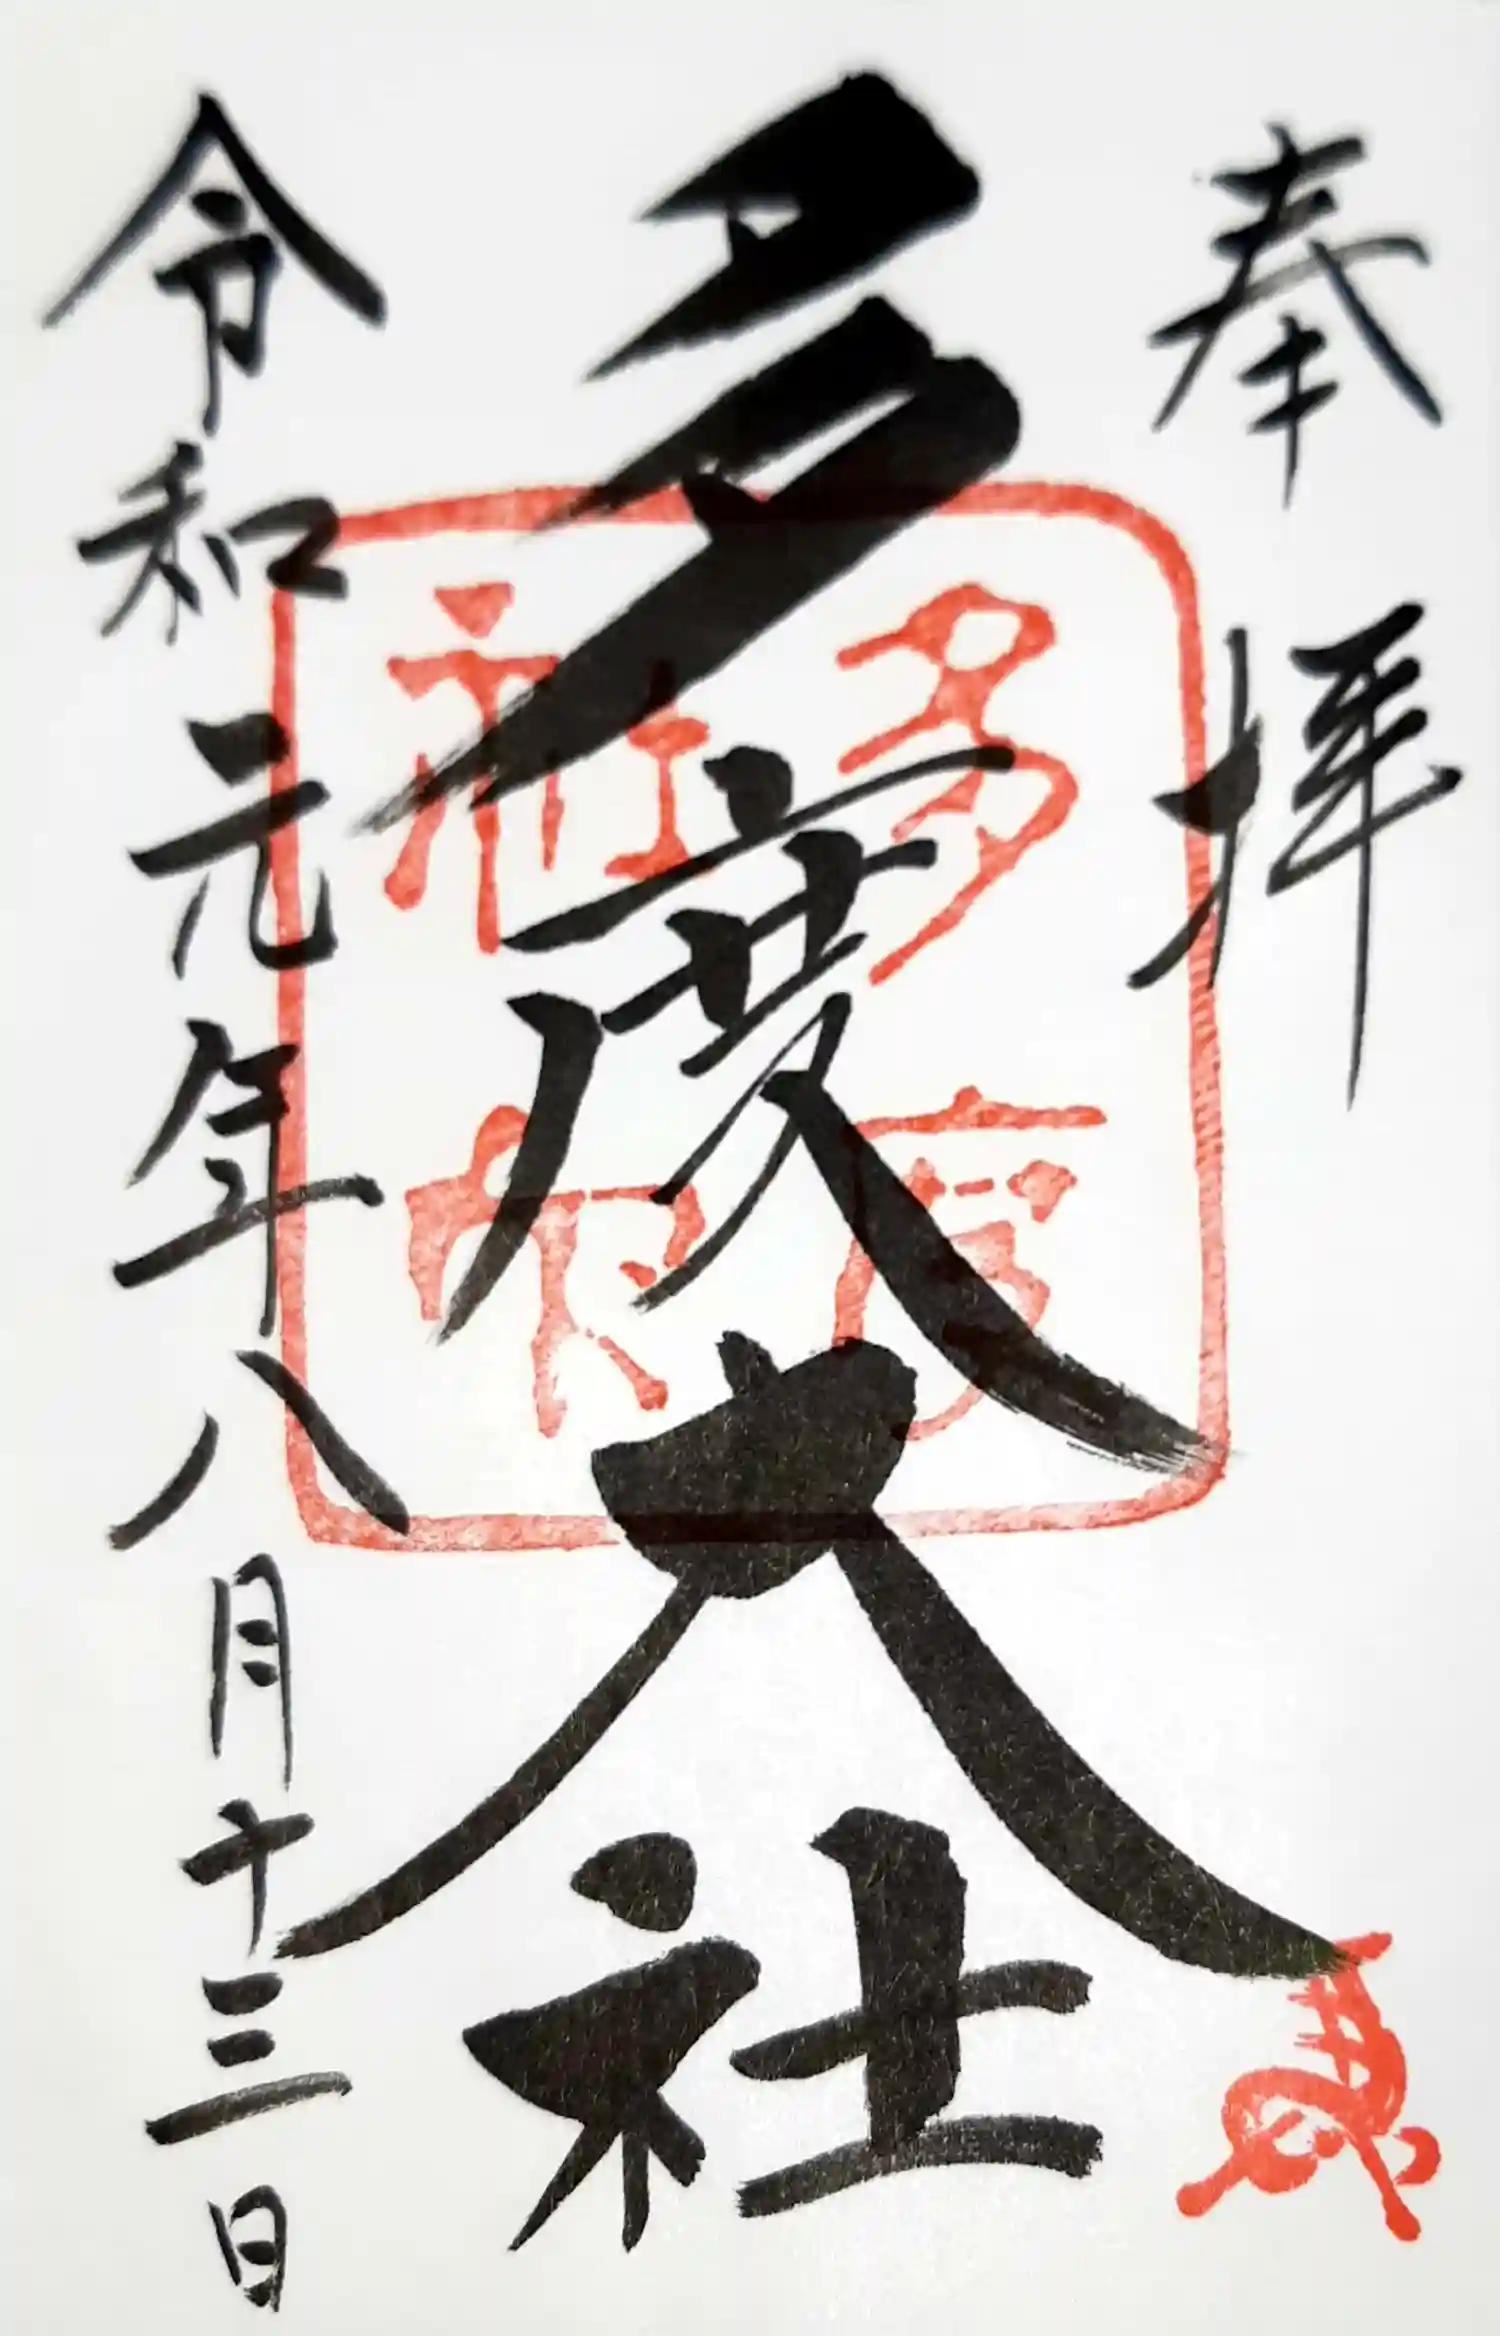 奉拝
多度大社
多度
社印
令和元年八月十三日